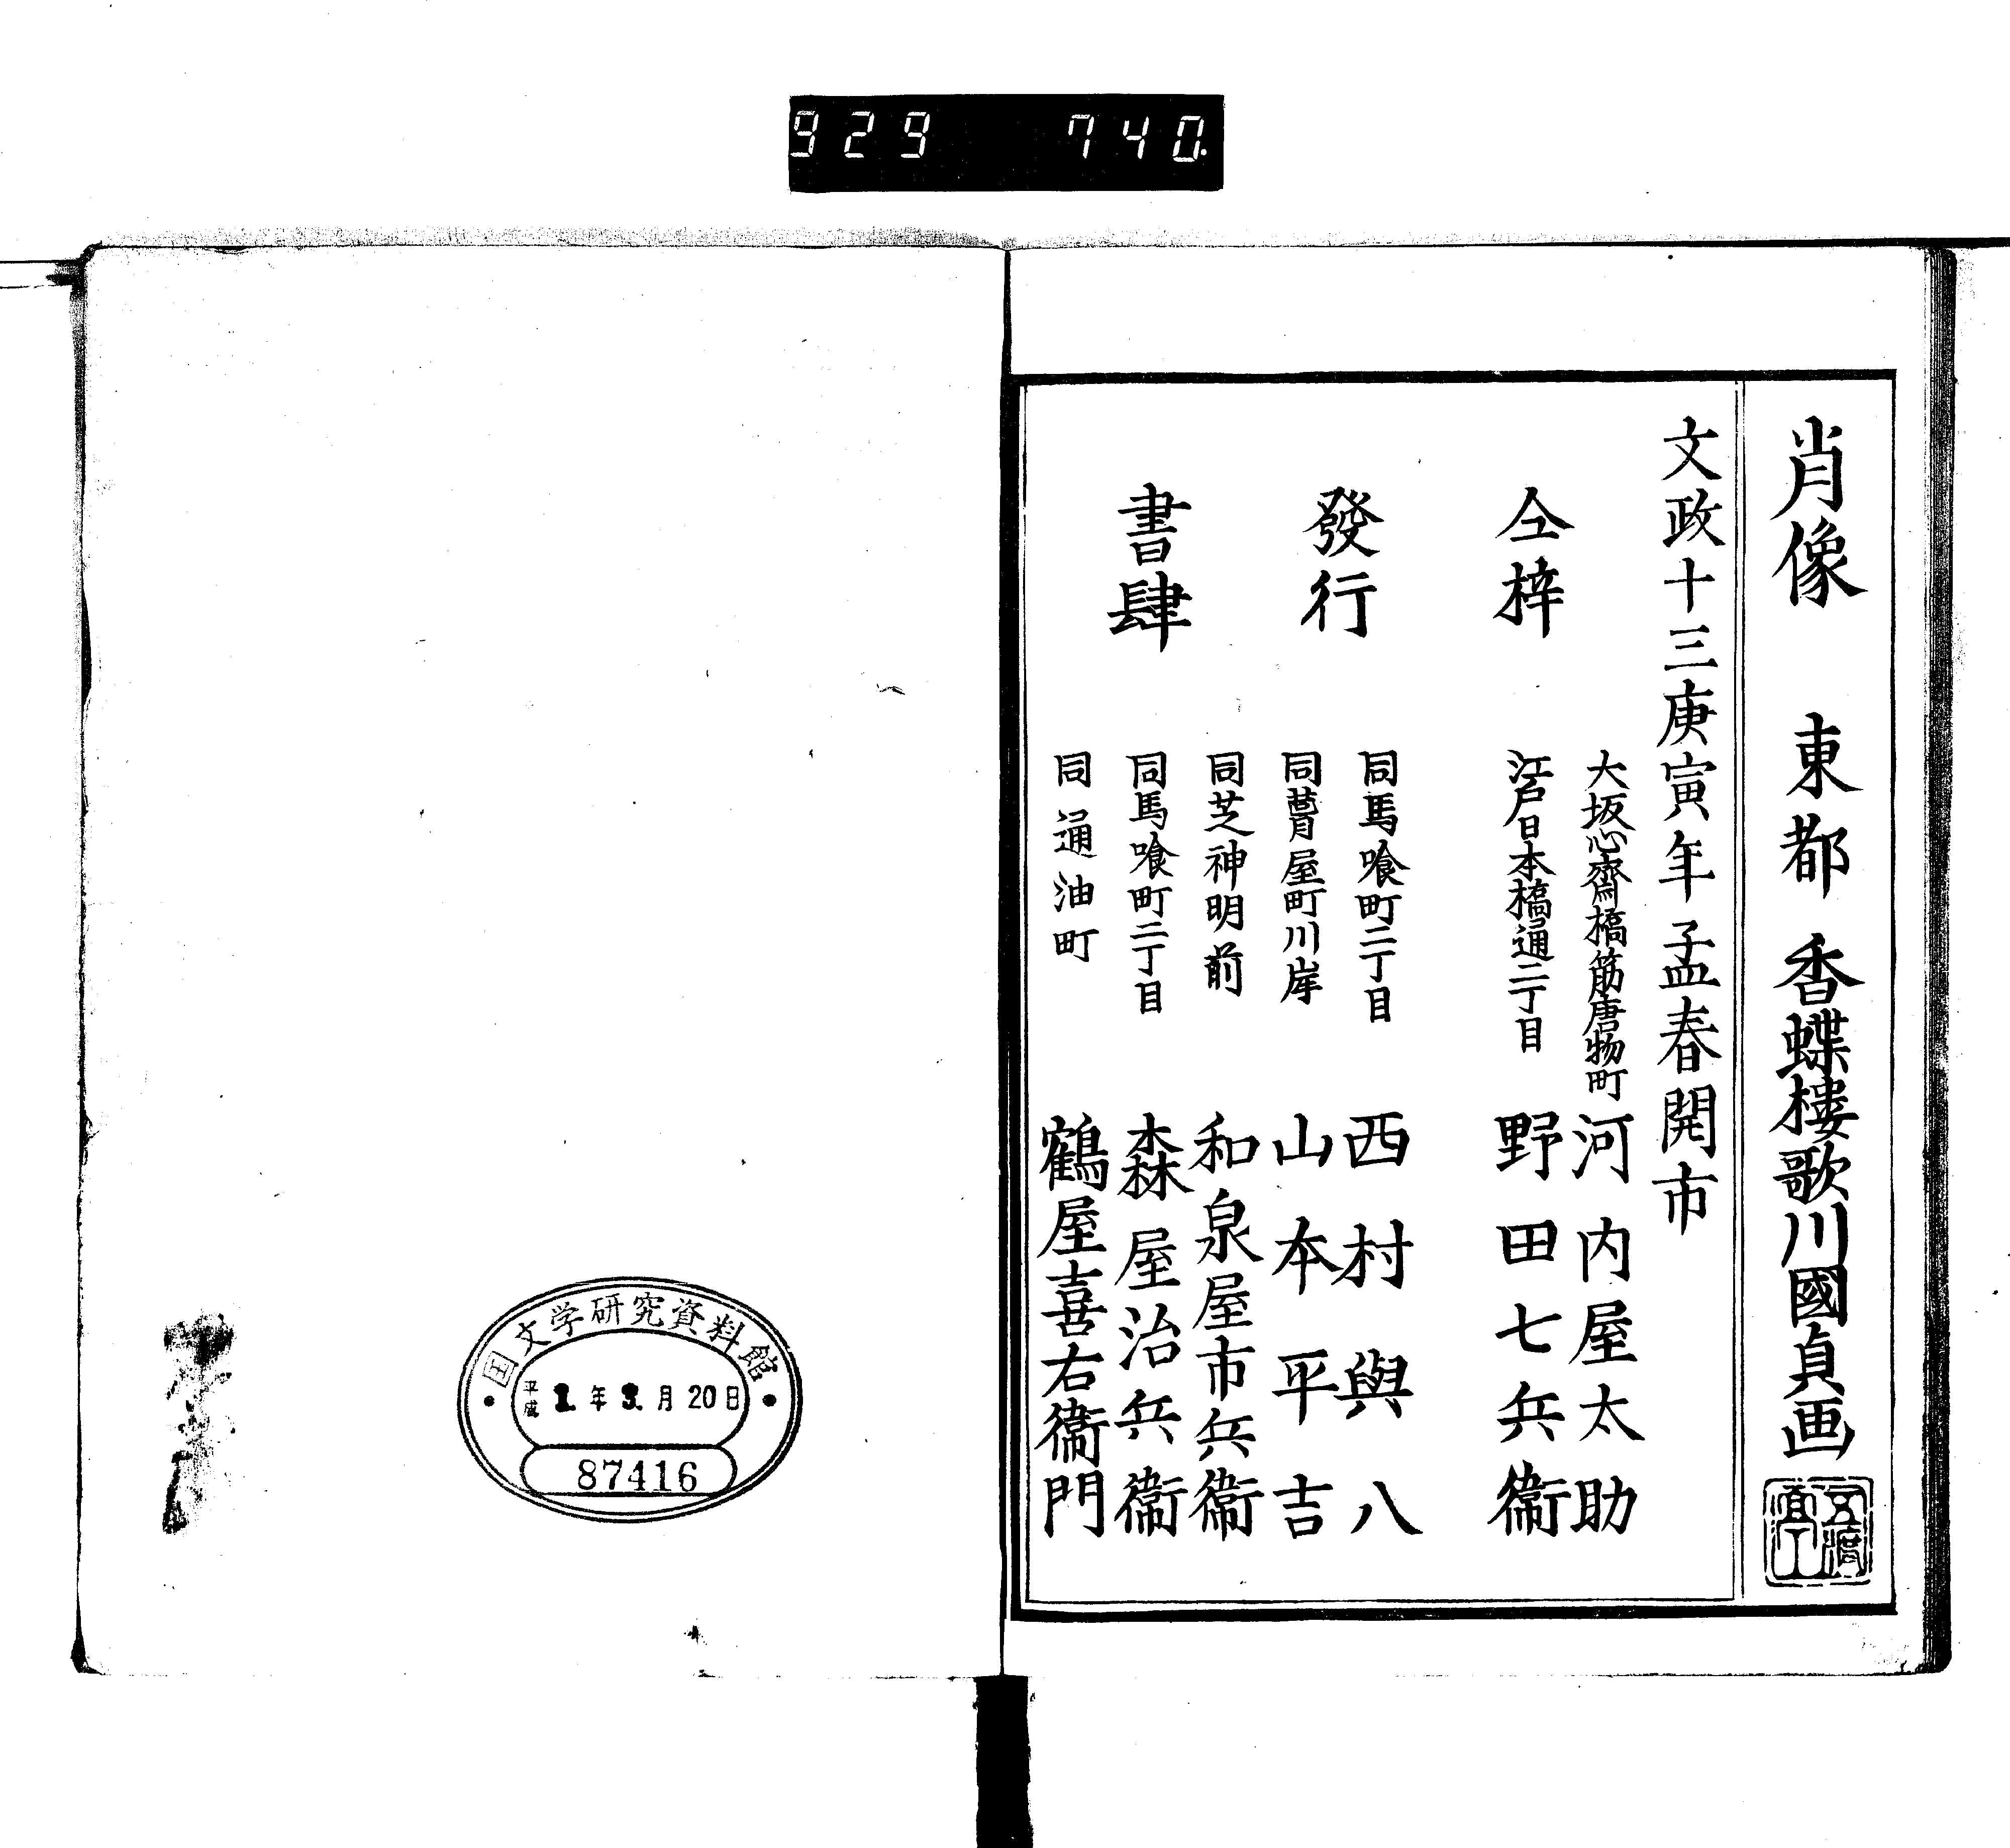 929 740
肖像 東都 香蝶樓歌川國貞画
五渡亭
文政十三庚寅年孟春開市
仝梓
發行
書肆
大坂心齋橋筋唐物町 河内屋太助
江戸日本橋通二丁目 野田七兵衞
同馬喰町二丁目 西村與八
同葺屋町川岸 山本平吉
同芝神明前 和泉屋市兵衞
同馬喰町二丁目 森屋治兵衞
同通油町 鶴屋喜右衞門
国文学研究資料館
平成1年3月20日
87416